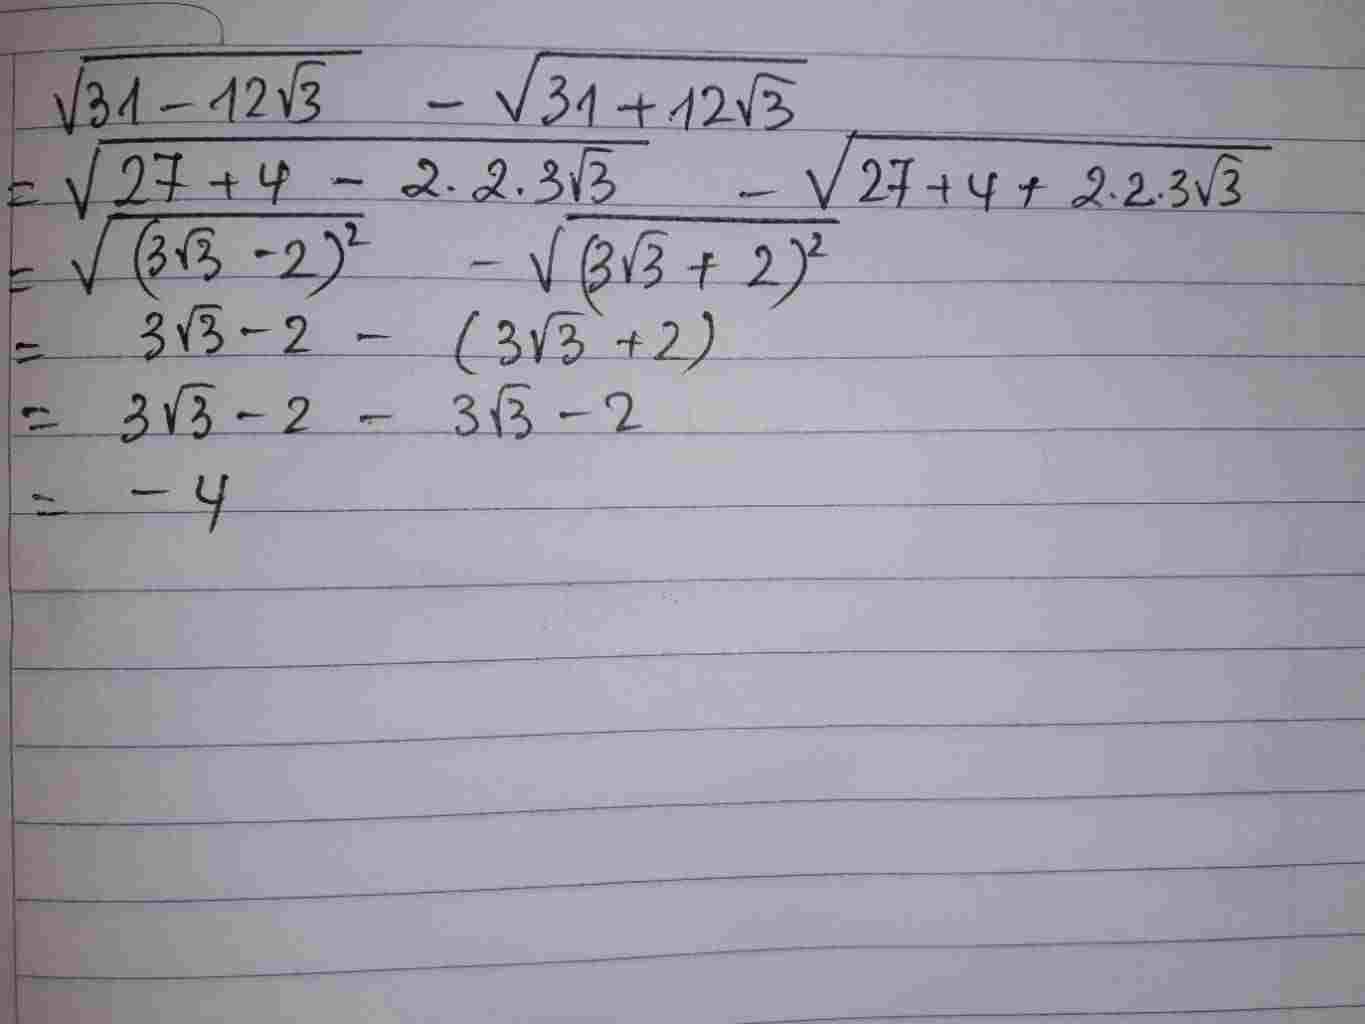 √(31 - 12√3) - √(31 + 12√3)
= √(27 + 4 - 2.2.3√3) - √(27 + 4 + 2.2.3√3)
= √((3√3 - 2)²) - √((3√3 + 2)²)
= 3√3 - 2 - (3√3 + 2)
= 3√3 - 2 - 3√3 - 2
= - 4